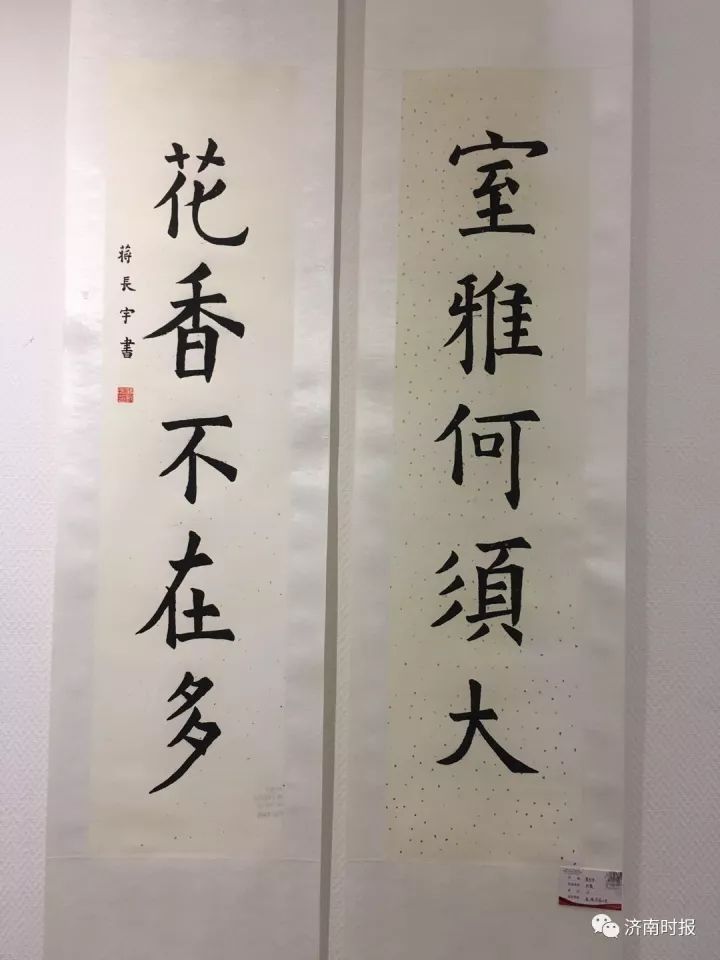 室雅何須大
花香不在多
蒋長宇書
济南时报